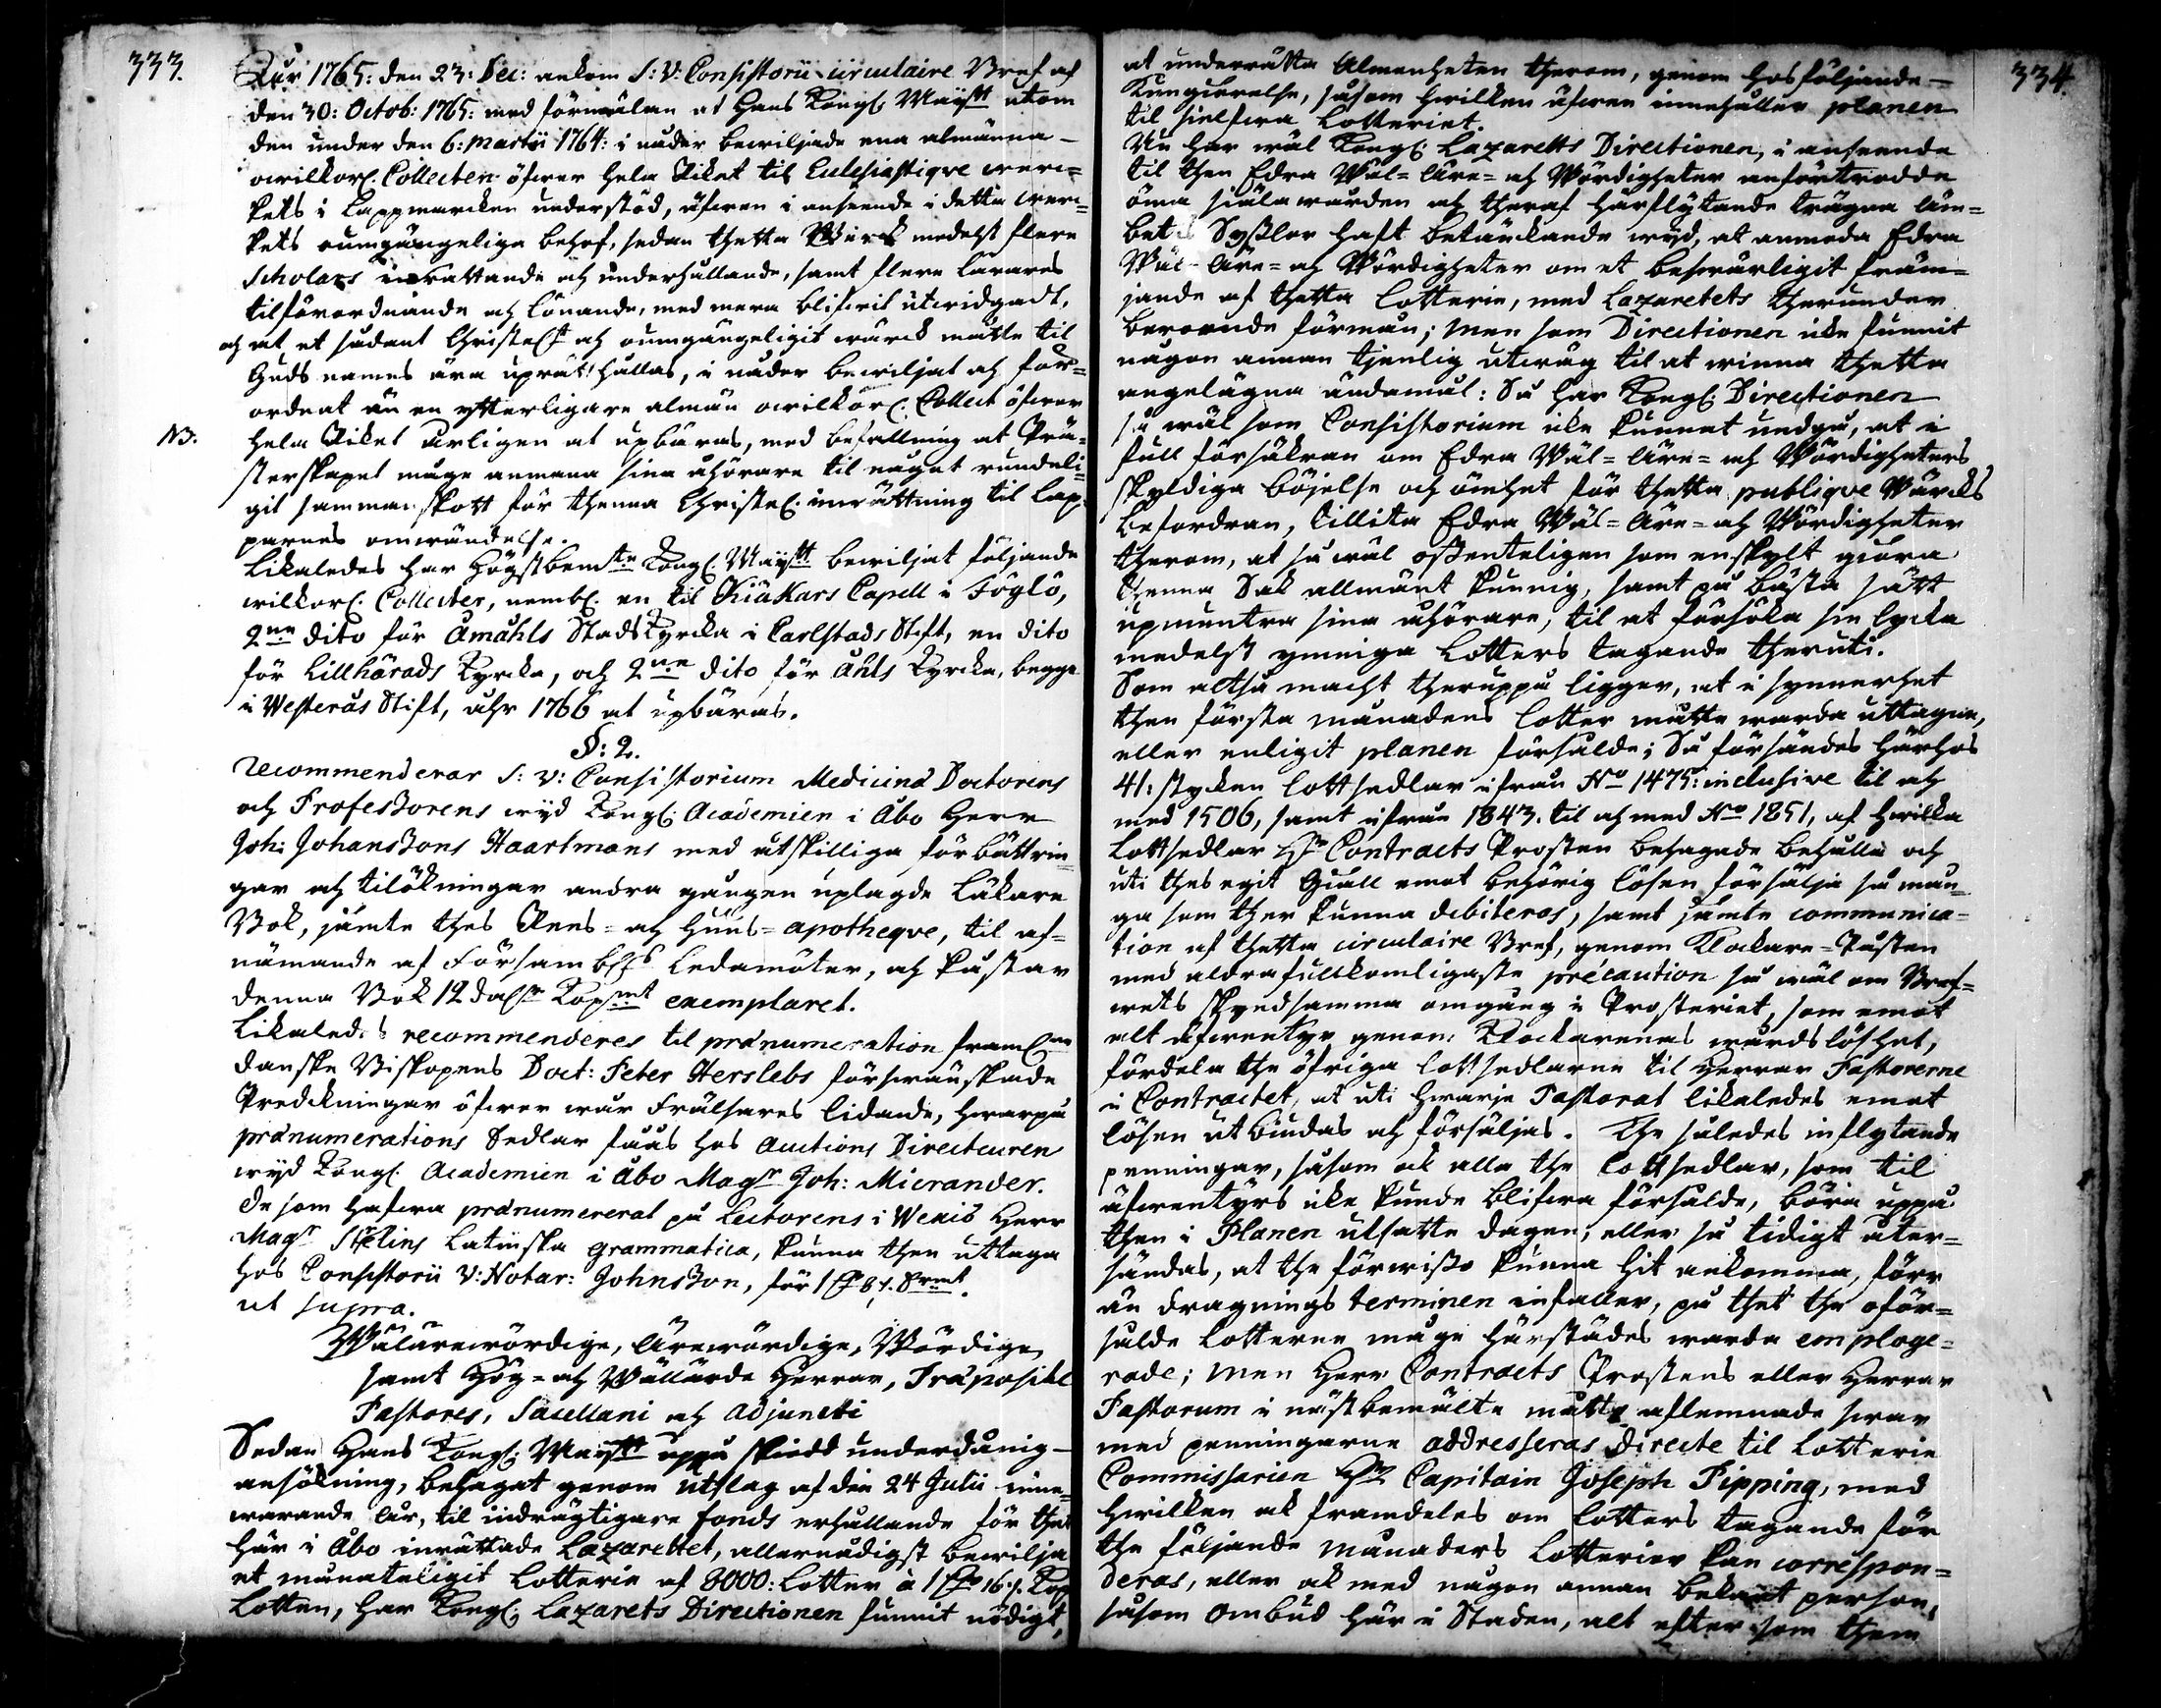 333.
Åhr 1765: den 23: Dec: ankom S: V: Consistorii circulaire Bref af
den 30: Octob: 1765: med förmälan at Hans Kongl. Maÿtt utom
den under den 6: Martii 1764: i nåder bewiljade ena almänna
owilkorl. Collecten öfwer hela Riket til Ecclesiastique werc-
kets i Lappmarcken understöd, äfwen i anseende i detta wer-
kets oumgängeliga behof, sedan thetta Werk medelst flere
Scholars inrättande och underhållande, samt flere Lärares
tilförordnande och Lönande, med mera blifwit utwidgadt,
och at et sådant Christel:t och oumgängeligit wärck måtte til
Guds namns ära uprätthållas, i nåder bewiljat och för-
ordnat än en ytterligare almän owilkorl. Collect öfwer
NB. hela Riket årligen at upbäras, med befallning at Prä-
sterskapet måge anmana sina åhörare til något rundeli-
git sammanskott för thenna Christel. inrättning til Lap-
parnes omwändelse.
Likaledes har Högstbemte Kongl. Maÿtt bewiljat följande
wilkorl. Collecter, nembl. en til Kiäkars Capell i Föglö,
2ne dito för Åmåhls Stads Kyrcka i Carlstads Stift, en dito
för Lillhärads Kyrcka, och 2ne dito för Åhls Kyrcka, begge
i Westerås Stift, åhr 1766 at upbäras.
§: 2.
Recommenderar S: V: Consistorium Medicinæ Doctorens
och Professorens wyd Kongl. Academien i Åbo Herr
Joh: Johanssons Haartmans med åtskilliga förbättrin-
gar och tilökningar andra gången uplagde Läkare
Bok, jämte thes Rese- och Huus-apotheqve, til af-
nämande af Försambl:s Ledamöter, och kåstar
denna Bok 12 dal:r Kop:mt exemplaret.
Likaledes recommenderes til prænumeration framl:ne
danske Biskopens Doct: Peter Herslebs förswänskade
Predikningar öfwer wår Frälsares lidande, hwarpå
prænumerations Sedlar fåås hos Auctions Directeuren
wyd Kongl. Academien i Åbo Mag:r Joh: Micrander.
De som hafwa prænumererat på Lectorens i Wexiö Herr
Mag:r Ihelins Latinska Grammatica, kunna then uttaga
hos Consistorii V: Notar: Johnsson, för
ut supra.
Wälärewördige, Ärewördige, Wördige,
samt Hög- och Wällärde Herrar, Præposite
Pastores, Sacellani och Adjuncti
Sedan Hans Kongl. Maÿtt uppå skiedd underdånig
ansökning, behagat genom utslag af den 24 Julii inne-
warande åhr, til indrägtigare fonds erhållande för thet
här i Åbo inrättade Lazarettet, allernådigst bewilja
et månateligit Lotterie af 8000: Lotter à 1 16 Kop
Lotten, har Kongl. Lazarets Directionen funnit nödigt,
334.
at underrätta Almenheten therom, genom hosföljande
Kungiörelse, såsom hwilken äfwen innehåller planen
til sielfwa Lotteriet.
Nu har wäl Kongl. Lazaretts Directionen, i anseende
til then Edra Wäl- Äre- och Wördigheter anförtrodde
öma siäla wården och theraf härflytande trägna äm-
bets Sysslor haft betänkande wyd, at anmoda Edra
Wäl- Äre- och Wördigheter om et beswärligit främ-
jande af thetta Lotterie, med Lazaretets therunder
beroende förmån; men som Directionen icke funnit
någon annan tjenlig utwäg til at winna thetta
angelägna ändamål: Så har Kongl. Directionen
så wäl som Consistorium icke kunnat undgå, at i
full försäkran om Edra Wäl- Äre- och Wördigheters
skyldiga böjelse och ömhet för thetta publique Wärcks
befordran, tillita Edra Wäl- Äre- och Wördigheter
therom, at så wäl offenteligen som enskylt giöra
thenna Sak allmänt kunnig, samt på bästa sätt
upmuntra sina åhörare, til at försöka sin lycka
medelst ymniga Lotters tagande theruti.
Som altså macht theruppå ligger, at i synnerhet
then första månadens Lotter måtte warda uttagne,
eller enligit planen försålde; Så försändes härhos
41: stycken Lottsedlar ifrån No 1475: inclusive til och
med 1506, samt ifrån 1843. til och med No 1851, af hwilka
Lottsedlar Hr Contracts Prosten behagade behålla och
uti thes egit Giäll emot behörig lösen försälja så mån-
ga som ther kunna debiteras, samt jämte communica-
tion af thetta circulaire Bref, genom Klockare-Påsten
med aldrafullkomligaste précaution så wäl om Bref-
wets skyndsamma omgång i Prosteriet, som emot
alt äfwentyr genom Klockarenas wårdslöshet,
fördela the öfriga Lottsedlarne til Herrar Pastorerne
i Contractet, at uti hwarje Pastorat likaledes emot
lösen utbiudas och försäljas. The således inflytande
penningar, såsom ock alla the Lottsedlar, som til
äfwentyrs icke kunde blifwa försålde, böra uppå
then i Planen utsatte dagen, eller så tidigt åter-
sändas, at the förwisso kunna hit ankomma, förr
än dragnings terminen infaller, på thet the oför-
sålde Lotterne måge härstädes warda employe-
rade; men Herr Contracts Prostens eller Herrar
Pastorum i nästbemälte måtto aflemnade swar
med penningarne addresseras directe til Lotterie
Commissarien Hr Capitain Joseph Pipping, med
hwilken ock framdeles om Lotters tagande för
the följande månaders Lotterier kan correspon-
deras, eller ock med någon annan bekant person,
såsom Ombud här i Staden, alt efter som them